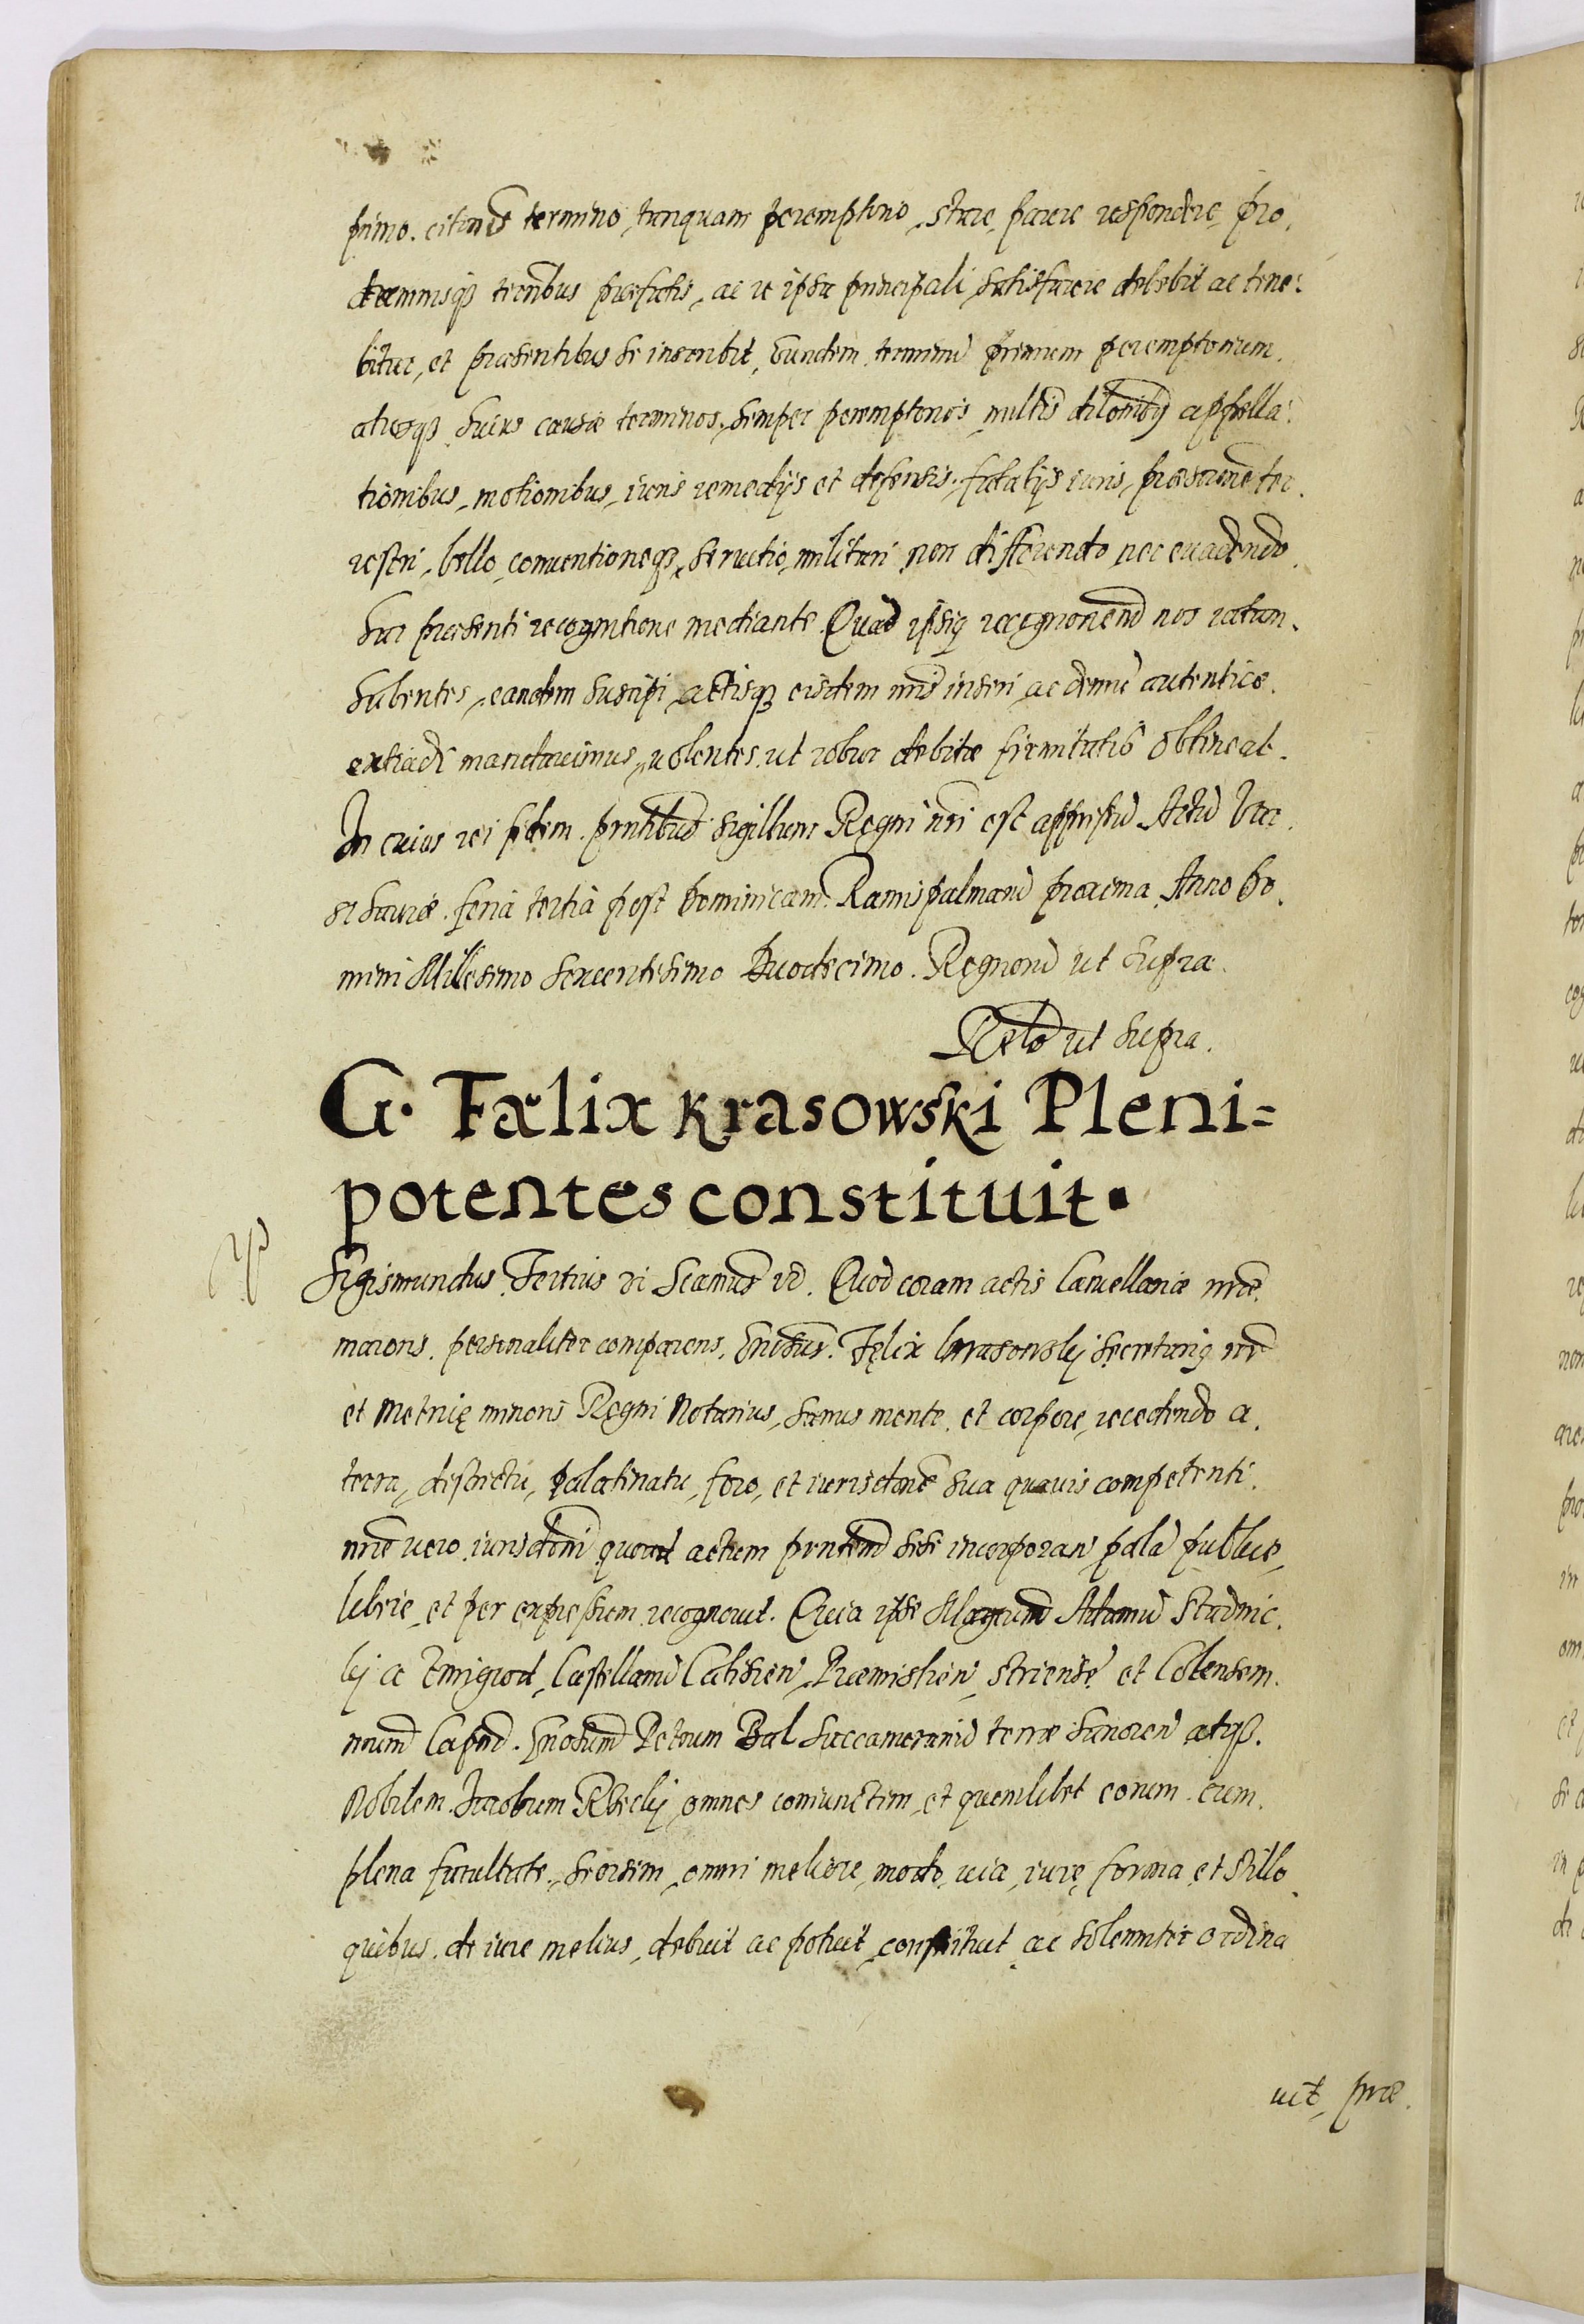 primo. citandi termino, tanquam peremptorio, stare, parere respondere, pro.
damnisq3 terrnibus praefatis, ac re ipsa principali satisfacere debebit ac tene:
bitur, et praesentibus se inscribit, Eundem terminũ primum peremptorium.
aliosq3 huius causae terminos, semper peremptorios nullis dilõnibq appella:
tionibus, motionibus, iuris remedÿs et defensis, fatalÿs iuris, praescripne ter.
restri, bello, conuentioneq3, seruitio, militari non differendo nec euadendo
sua praesenti recognitione mediante. Quad ipsiq recognonem̃ nos ratam.
habentes, eandem suscipi, actisq3 eisdem nris inseri, ac demũ autentice.
extradi mandauimus, uolentes, ut robur debitae firmitatis obtineat.
In cuius rei fidem. prntibus sigillum Regni nri est appressũ Actũ Var.
sauiae. feria tertia post Dominicam Ramispalmarũ proxima Anno Do.
mini Millesimo sexcentesimo Duodecimo. Regnorũ ut supra.
Relõ ut supra.
G. Faelix Krasowski Pleni=
potentes constituit.
Sigismundus Tertius di Scamus rc. Quod coram actis Cancellariae nrae
maioris. personaliter comparens, Gnrosus. Fęlix Krrasowskj Secretariq nr
et Metricę minoris Regni Notarius, sanus mente. et corpore, recedendo a.
terra, districtu, palatinatu, foro, et iurisdtone sua quauis competenti.
nrae vero iurisdtoni quoad actum prntem̃ sese incorporan palã publice,
libere, et per expressum recognouit. Quia ipse Magcum̃ Adamũ Stadnic.
kj a Zmigrod, Castellanũ Calisien, Praemislien, Striensẽ et Colensem.
nrum̃ Capnm̃. Gnosum̃ Petrum Bal Succamerariũ terrae Sanocen atq3.
Nobilem. Jacobum Rbeckj, omnes coniunctim, et quemlibet eorum. cum.
plena facultate, seorsim, omni meliore, modo, uia, iurę, forma, et stillo
quibus. de iure melius, debuit ac potuit, constituit ac solemniter ordina
uit, prae.